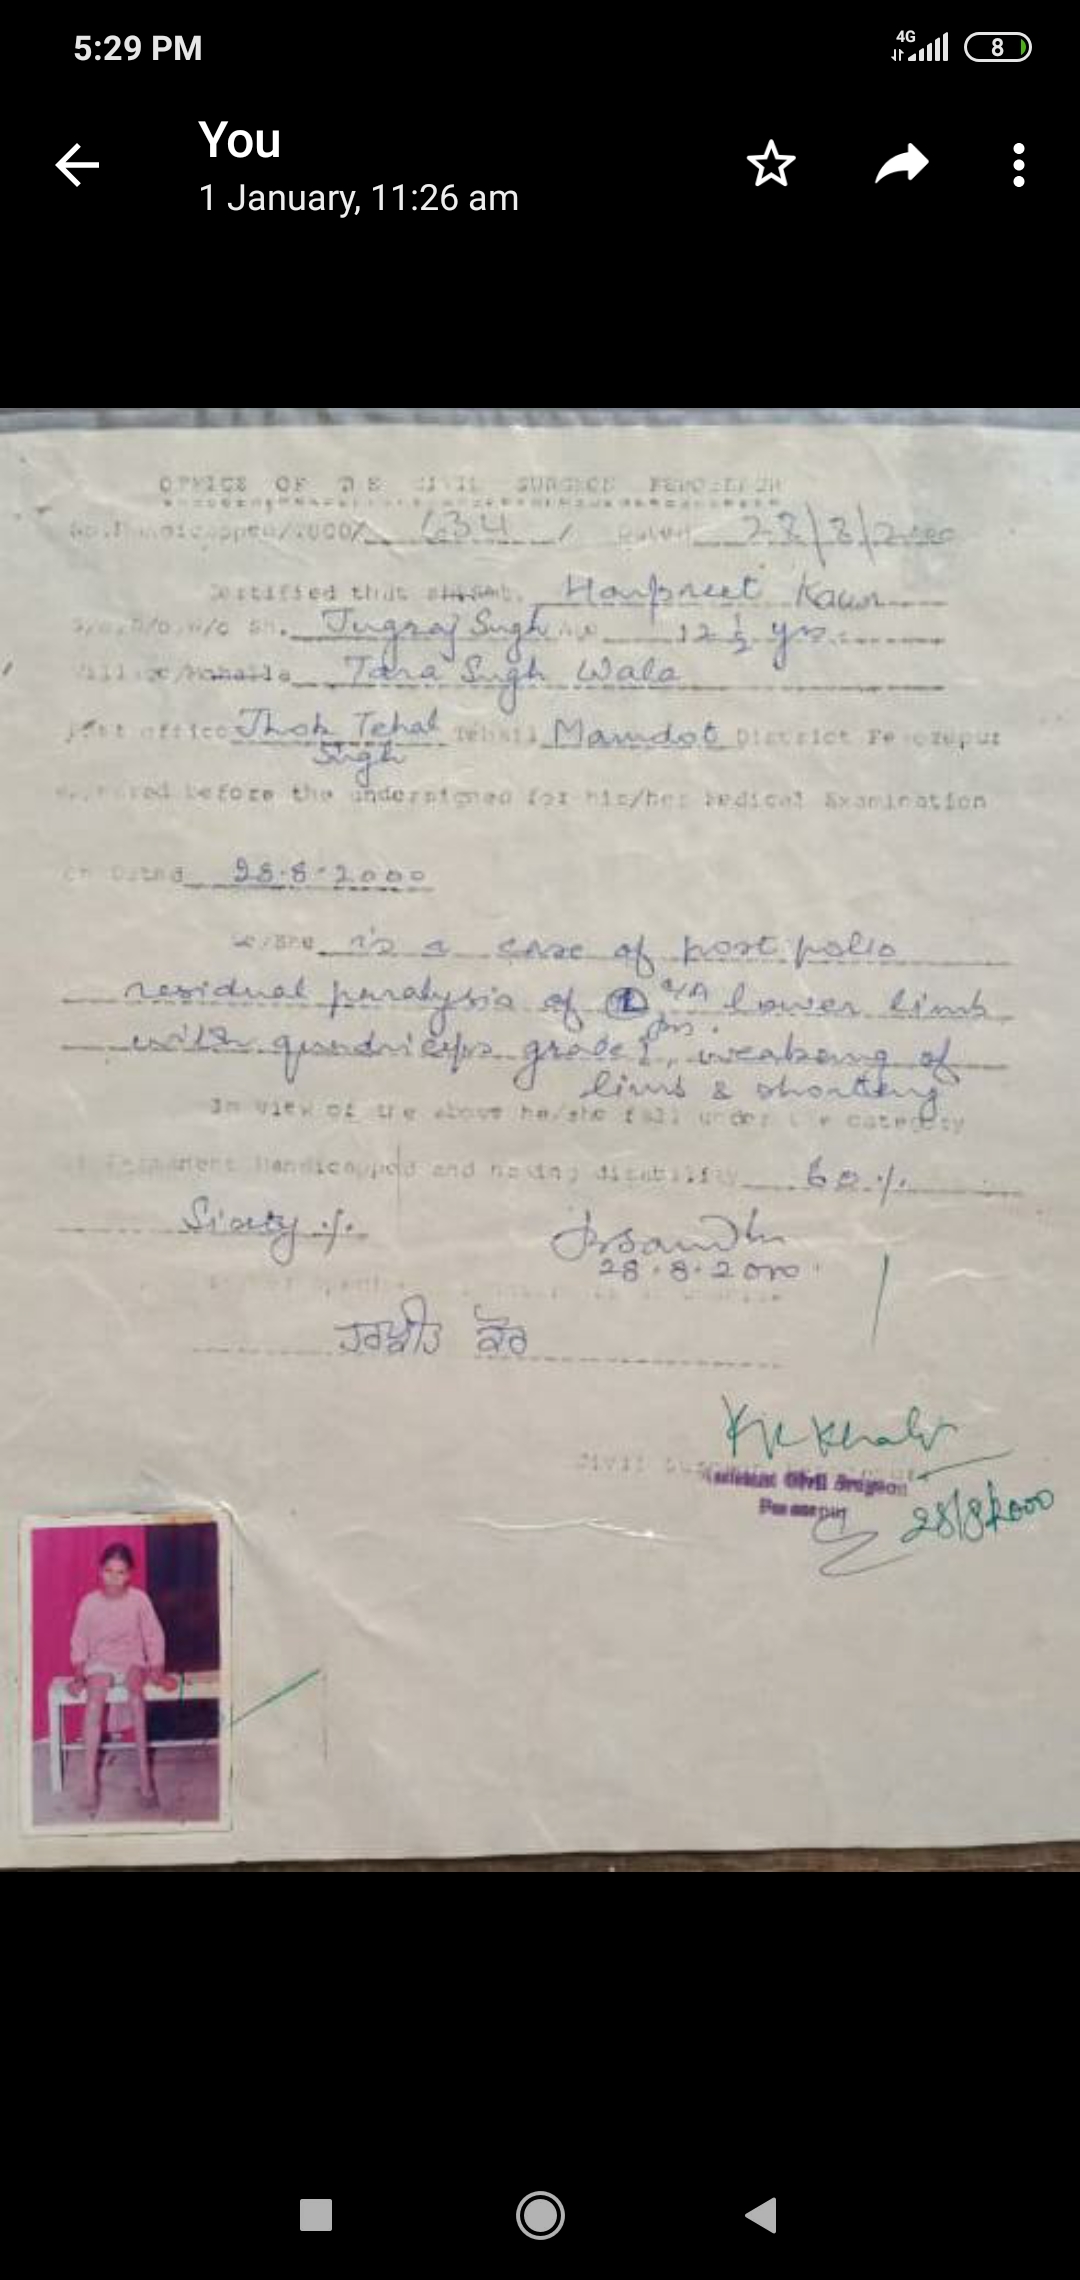 5:29 PM
4G
8
You
1 January, 11:26 am
OFFICE OF THE CIVIL SURGEON FEROZEPUR
No.Handicapped/2000/ 634 / Dated 28/8/2000
Certified that Smt. Harpreet Kaur
S/o,D/o,W/o Sh. Jugraj Singh 12 1/2 yrs.
Village/Mohalla Tara Singh Wala
post office Jhok Tehal Singh Tehsil Mamdot District Ferozepur
appeared before the undersigned for his/her Medical Examination
on Dated 28.8.2000
He/She is a case of post polio
residual paralysis of lower limb
with quadriceps grade, of
limb & shorteng
In view of the above he/she fall under the category
of Permanent Handicapped and having disability 60 %
Sixty %
28.8.2000
ਹਰਪ੍ਰੀਤ ਕੌਰ
Civil
Assistant Civil Surgeon
Ferozepur
28/8/2000